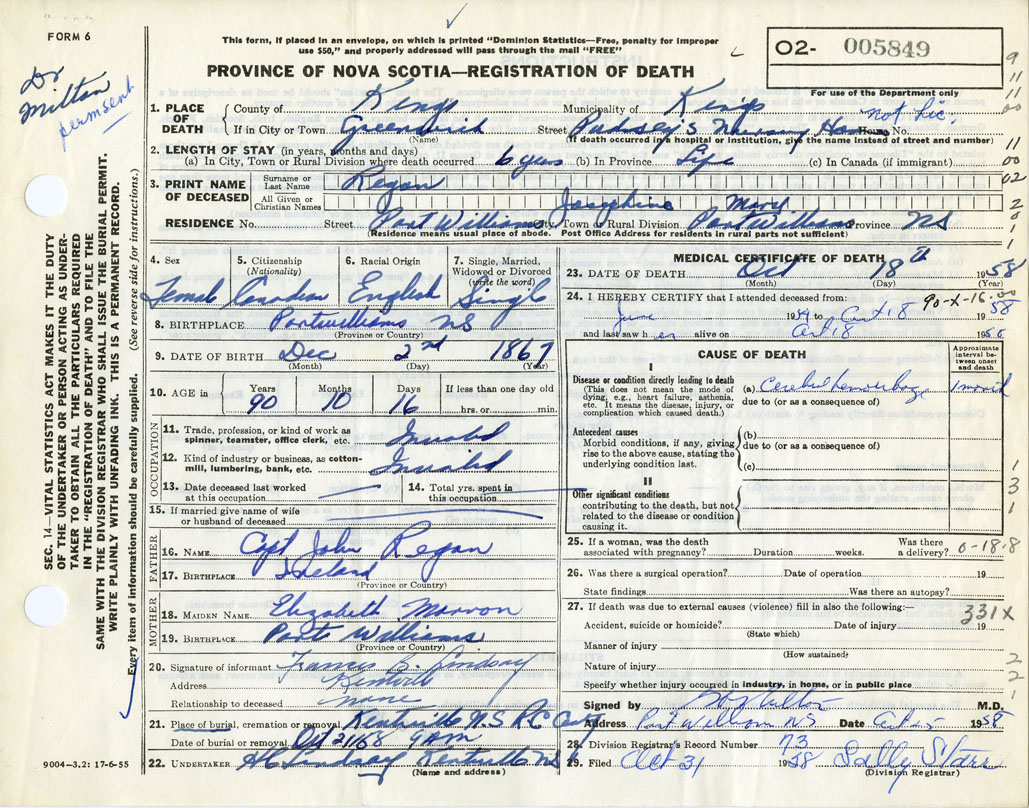 FORM 6
This form, if placed in an envelope, on which is printed "Dominion Statistics—Free, penalty for improper
use $50," and properly addressed will pass through the mail "FREE"
PROVINCE OF NOVA SCOTIA—REGISTRATION OF DEATH
O2- 005849
For use of the Department only
Dr
Milton
perm sent
1. PLACE OF DEATH
County of Kings Municipality of Kings
not Lic.
If in City or Town Greenwich Street Nursing Home House No.
(Name) (If death occurred in a hospital or institution, give the name instead of street and number)
2. LENGTH OF STAY (in years, months and days)
(a) In City, Town or Rural Division where death occurred 6 years (b) In Province Life (c) In Canada (if immigrant)
3. PRINT NAME OF DECEASED
Surname or Last Name Regan
All Given or Christian Names Josephine Mary
RESIDENCE No. Street Port Williams City, Town or Rural Division Port Williams Province NS
(Residence means usual place of abode. Post Office Address for residents in rural parts not sufficient)
4. Sex Female
5. Citizenship (Nationality) Canadian
6. Racial Origin English
7. Single, Married, Widowed or Divorced (write the word) Single
8. BIRTHPLACE Portwilliams NS
(Province or Country)
9. DATE OF BIRTH Dec 2nd 1867
(Month) (Day) (Year)
10. AGE in Years 90 Months 10 Days 16 If less than one day old hrs. or min.
OCCUPATION
11. Trade, profession or kind of work as spinner, teamster, office clerk, etc. Invalid
12. Kind of industry or business, as cotton-mill, lumbering, bank, etc. Invalid
13. Date deceased last worked at this occupation
14. Total yrs. spent in this occupation
15. If married give name of wife or husband of deceased
FATHER
16. NAME Capt John Regan
17. BIRTHPLACE Ireland
(Province or Country)
MOTHER
18. MAIDEN NAME Elizabeth
19. BIRTHPLACE Port Williams
(Province or Country)
20. Signature of informant Francis B. Lindsay
Address Kentville
Relationship to deceased none
21. Place of burial, cremation or removal Kentville N.S. R.C. Cem
Date of burial or removal Oct 21/58 9 am
22. UNDERTAKER H C Lindsay Kentville NS
(Name and address)
9004-3.2: 17-6-55
MEDICAL CERTIFICATE OF DEATH
23. DATE OF DEATH Oct 18th 1958
(Month) (Day) (Year)
90-X-16.00
24. I HEREBY CERTIFY that I attended deceased from:
June 19 to Oct 18 1958
and last saw her alive on Oct 18 19
CAUSE OF DEATH
Approximate interval between onset and death
I
Disease or condition directly leading to death
(This does not mean the mode of dying, e.g., heart failure, asthenia, etc. It means the disease, injury, or complication which caused death.)
(a) Cerebral hemorrhage
due to (or as a consequence of)
Antecedent causes
Morbid conditions, if any, giving rise to the above cause, stating the underlying condition last.
(b)
due to (or as a consequence of)
(c)
II
Other significant conditions
contributing to the death, but not related to the disease or condition causing it.
25. If a woman, was the death associated with pregnancy? Duration weeks. Was there a delivery?
0-18.8
26. Was there a surgical operation? Date of operation 19
State findings Was there an autopsy?
27. If death was due to external causes (violence) fill in also the following:—
331X
Accident, suicide or homicide? Date of injury 19
(State which)
Manner of injury
(How sustained)
Nature of injury
Specify whether injury occurred in industry, in home, or in public place
Signed by M.D.
Address Port Williams NS Date 1958
28. Division Registrar's Record Number 73
29. Filed Oct 31 1958 Sally Starr
(Division Registrar)
SEC. 14—VITAL STATISTICS ACT MAKES IT THE DUTY
OF THE UNDERTAKER OR PERSON ACTING AS UNDER-
TAKER TO OBTAIN ALL THE PARTICULARS REQUIRED
IN THE "REGISTRATION OF DEATH" AND TO FILE THE
SAME WITH THE DIVISION REGISTRAR WHO SHALL ISSUE THE BURIAL PERMIT.
WRITE PLAINLY WITH UNFADING INK. THIS IS A PERMANENT RECORD.
Every item of information should be carefully supplied. (See reverse side for instructions.)
9
11
11
00
11
00
02
2
0
1
1
1
3
1
2
2
1